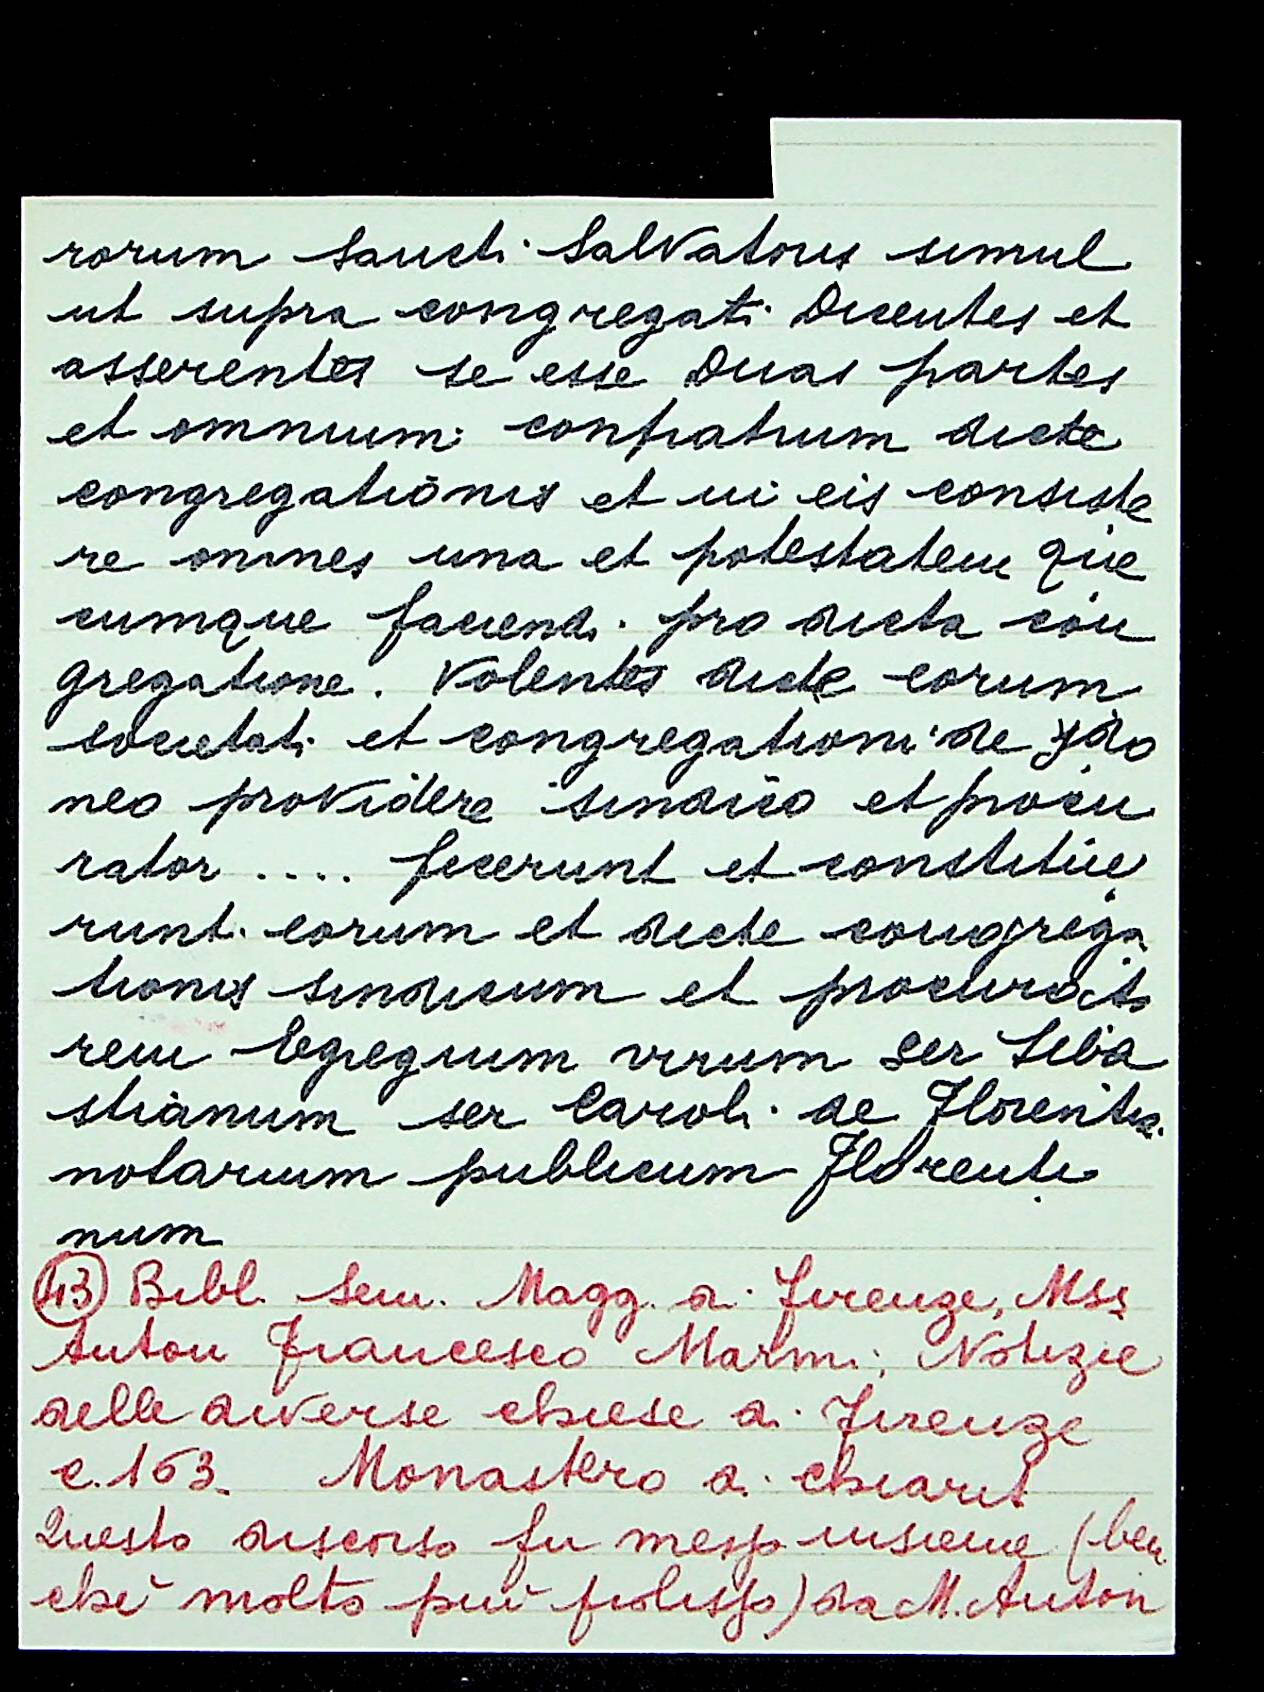 rorum Sancti Salvatoris simul
ut supra congregati Dicentes et
asserentes se esse Duas partes
et omnium confratrum dicte
congregationis et in eis consiste
re omnes una et potestatem que
cumque faciendi pro dicta con
gregatione. Volentes dicte eorum
societati et congregationi de ydo
neo providere sindico et procu
rator .... fecerunt et constitue
runt eorum et dicte congrega
tionis sindicum et procurato
rem Egregium virum Ser Seba
stianum ser Caroli de Florentia
notarium publicum Florenti
num
(43) Bibl. Sem. Magg. di Firenze, Mss
Anton Francesco Marmi, Notizie
delle diverse chiese di Firenze
c. 163. Monastero di Chiarit
Questo discorso fu messo insieme (ben
chè molto più prolisso) da M. Anton